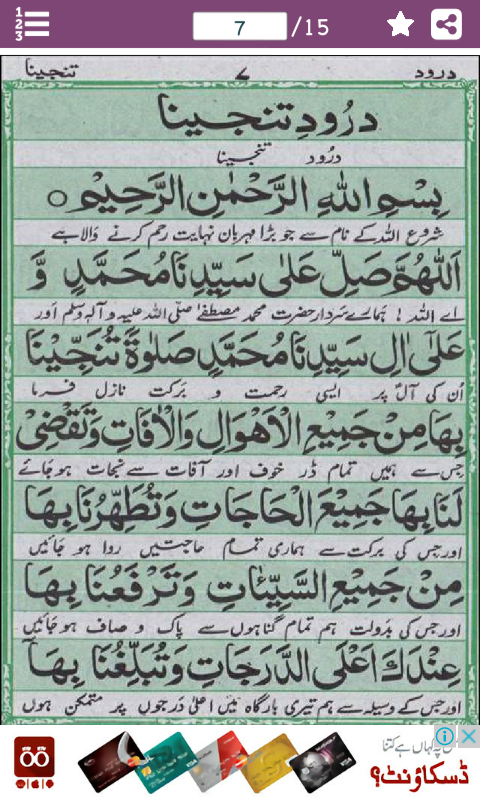 1
2
3
7 /15
درود ے تنجینا
درُودِ تنجینا
درُود تنجینا
بِسْمِ اللهِ الرَّحْمٰنِ الرَّحِيْمِ ○
شروع اللہ کے نام سے جو بڑا مہربان نہایت رحم کرنے والا ہے
اَللّٰهُمَّ صَلِّ عَلٰى سَيِّدِنَا مُحَمَّدٍ وَّ
اے اللہ ! ہمارے سردار حضرت محمد مصطفےٰ صلی اللہ علیہ و آلہ وسلم اور
عَلٰٓى اٰلِ سَيِّدِنَا مُحَمَّدٍ صَلٰوةً تُنَجِّيْنَا
اُن کی آل پر ایسی رحمت و برکت نازل فرما
بِهَا مِنْ جَمِيْعِ الْاَهْوَالِ وَالْاٰفَاتِ وَتَقْضِيْ
جس سے ہمیں تمام ڈر خوف اور آفات سے نجات ہو جائے
لَنَا بِهَا جَمِيْعَ الْحَاجَاتِ وَتُطَهِّرُنَا بِهَا
اور جس کی برکت سے ہماری تمام حاجتیں روا ہو جائیں
مِنْ جَمِيْعِ السَّيِّئَاتِ وَتَرْفَعُنَا بِهَا
اور جس کی بدولت ہم تمام گناہوں سے پاک و صاف ہو جائیں
عِنْدَكَ اَعْلَى الدَّرَجَاتِ وَتُبَلِّغُنَا بِهَا
اور جس کے وسیلہ سے ہم تیری بارگاہ میں اعلیٰ درجوں پر متمکن ہوں
کہاں ہے کتنا
ڈسکاؤنٹ؟
VISA